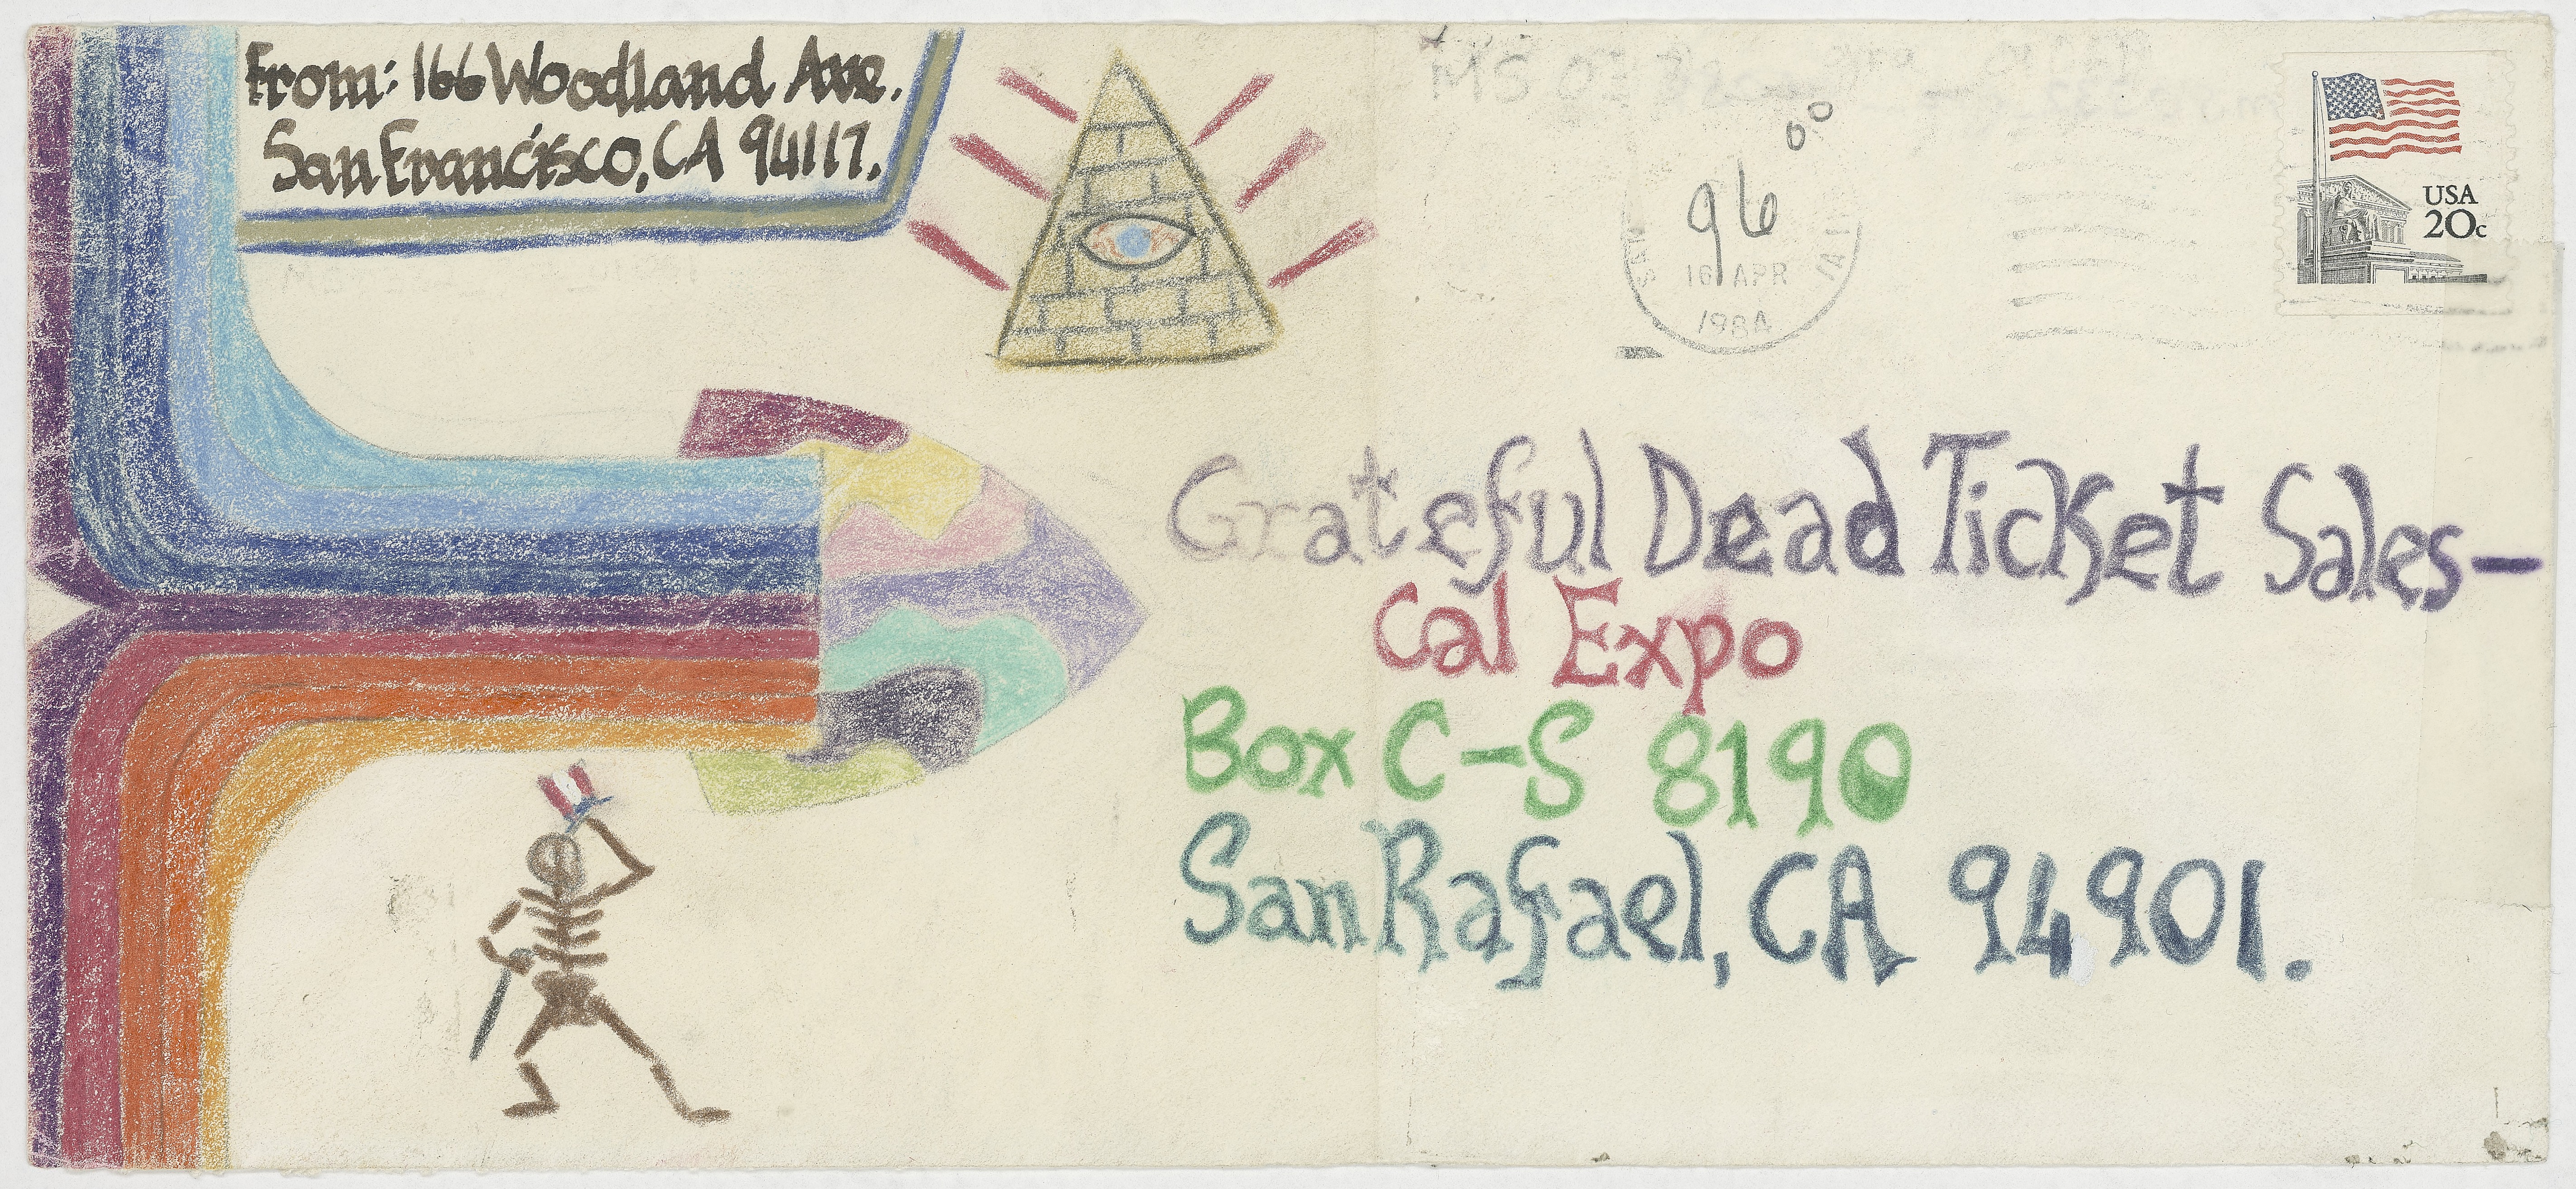 From: 166 Woodland Ave.
San Francisco, CA 94117.
96
00
16 APR
1984
USA
20c
Grateful Dead Ticket Sales—
Cal Expo
Box C-S 8190
San Rafael, CA 94901.